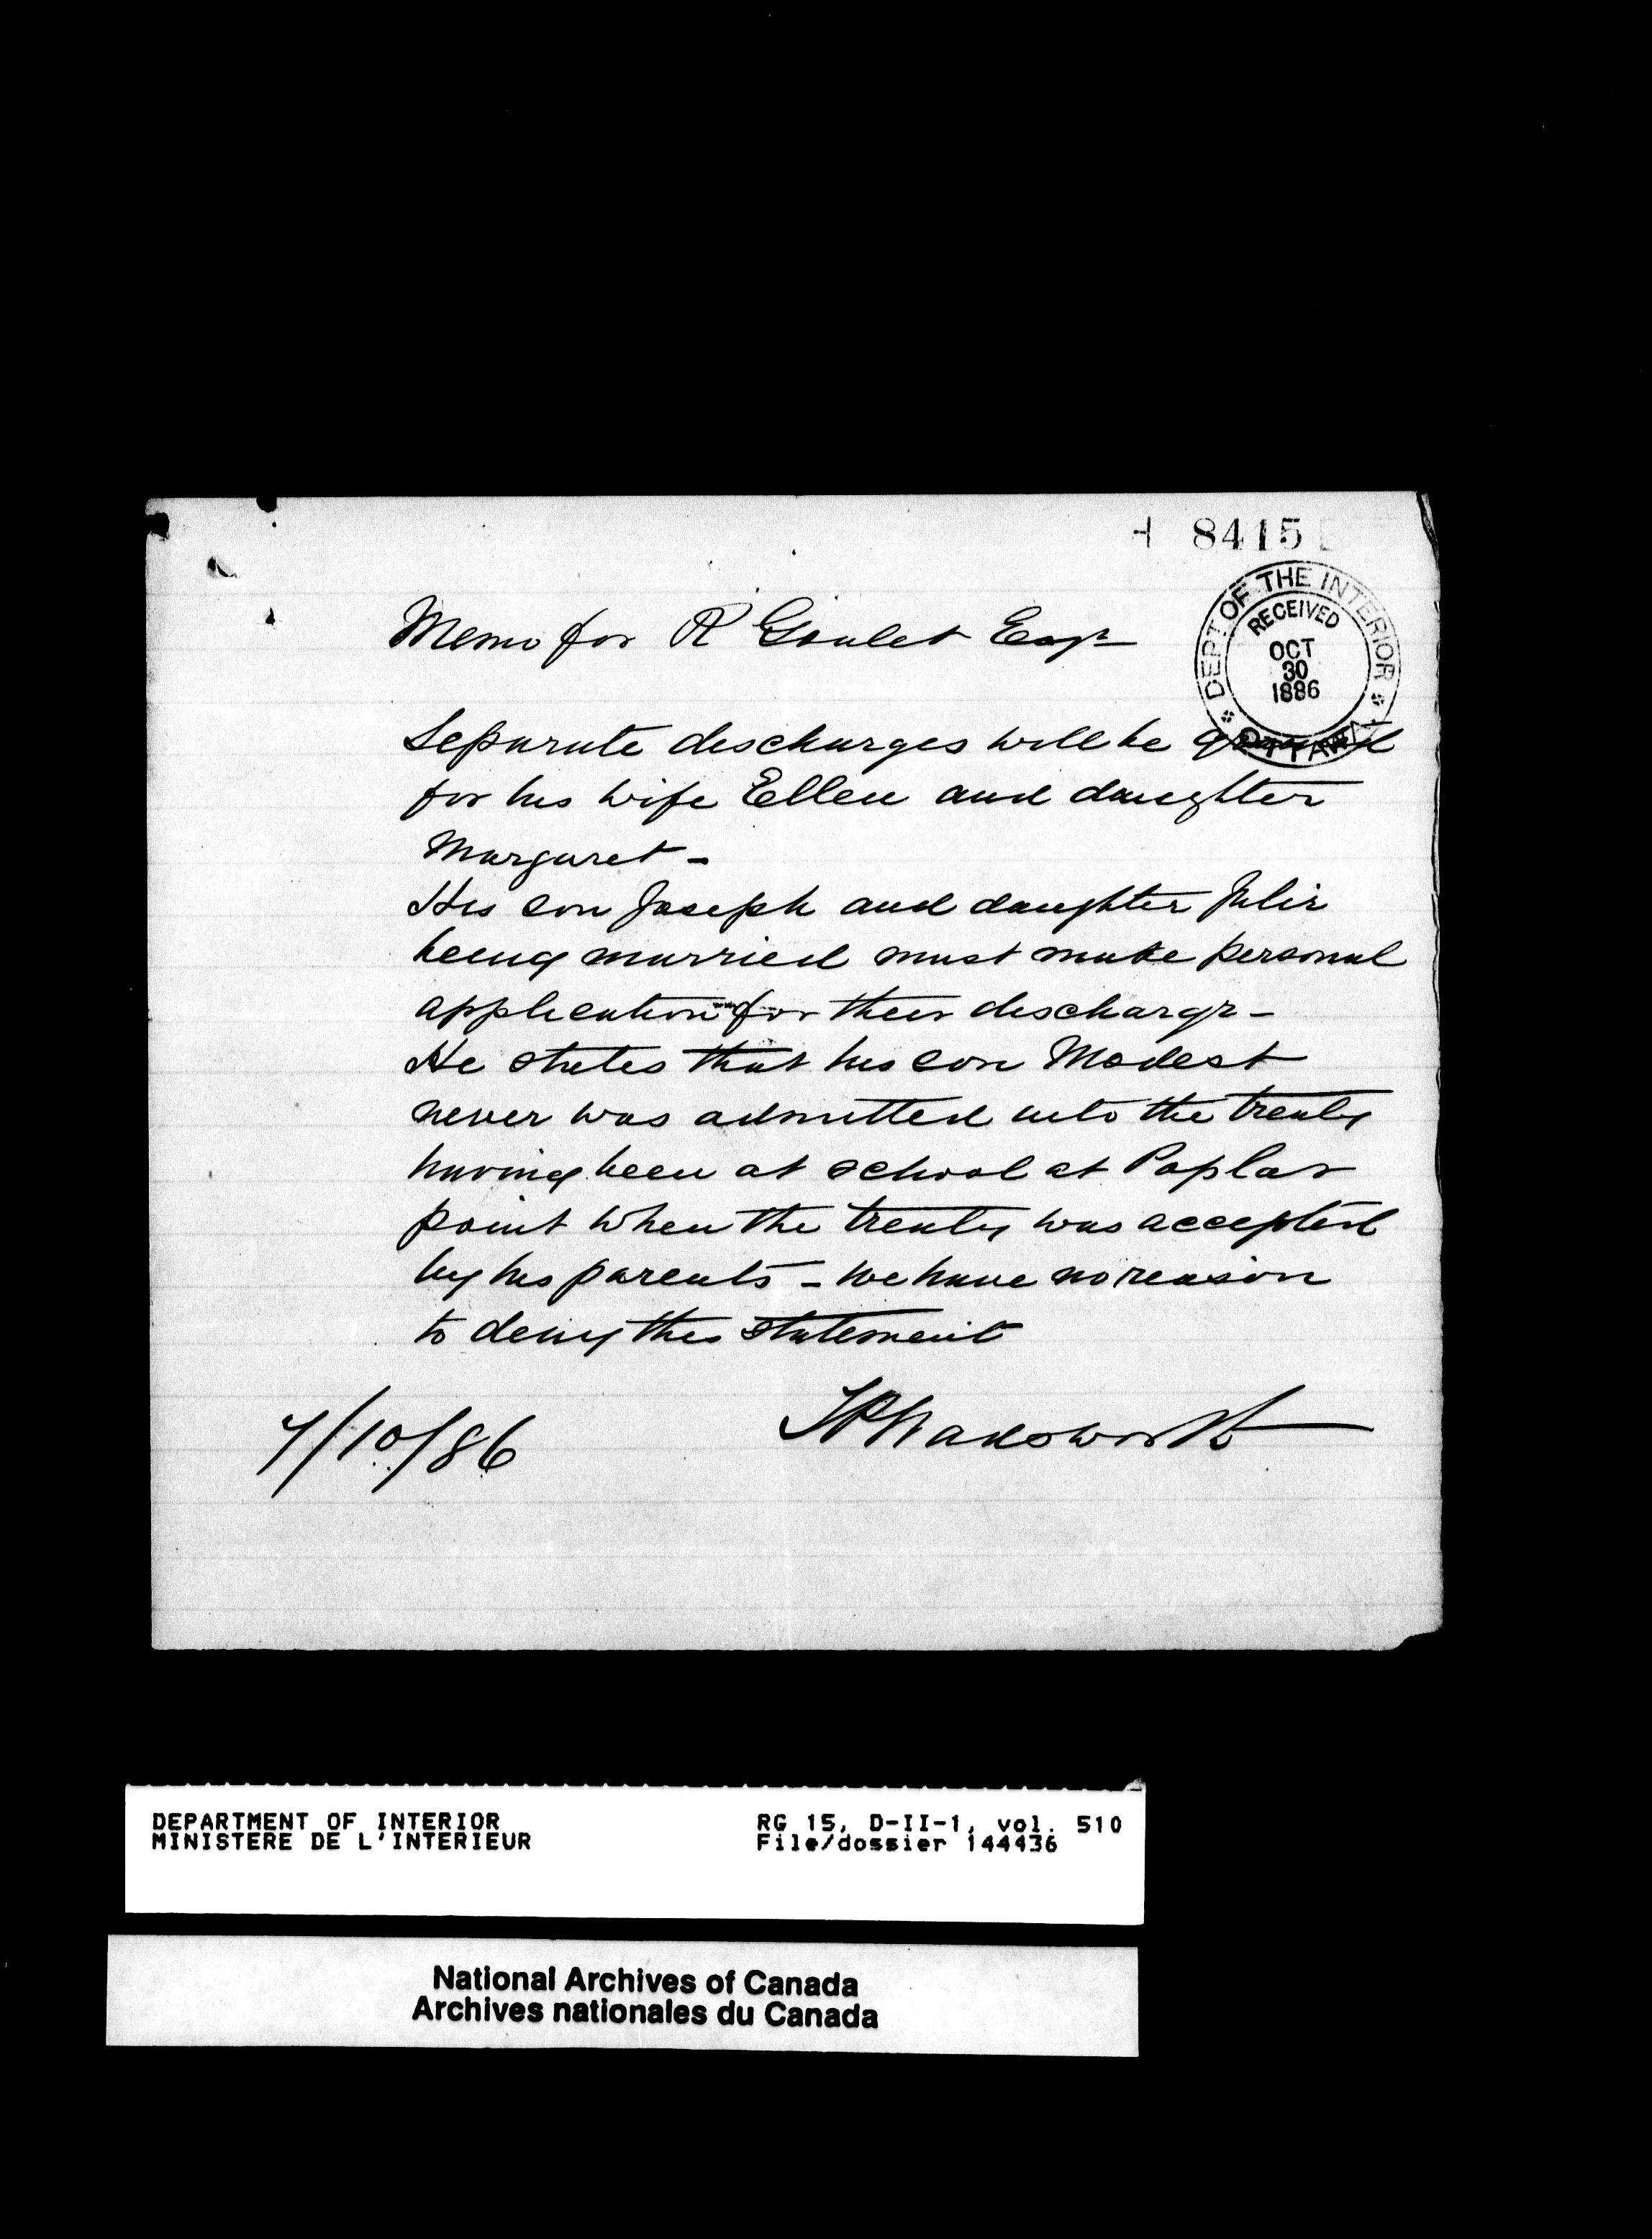 H 8415
DEPT OF THE INTERIOR
RECEIVED
OCT
30
1886
OTTAWA
Memo for R Goulet Esqr
Separate discharges will be granted
for his wife Ellen and daughter
Margaret -
His son Joseph and daughter Julie
being married must make personal
application for their discharge -
He states that his son Modest
never was admitted into the treaty
having been at school at Poplar
point when the treaty was accepted
by his parents - we have no reason
to deny this statement
7/10/86
TPWadsworth
DEPARTMENT OF INTERIOR
MINISTERE DE L'INTERIEUR
RG 15, D-II-1, vol. 510
File/dossier 144436
National Archives of Canada
Archives nationales du Canada